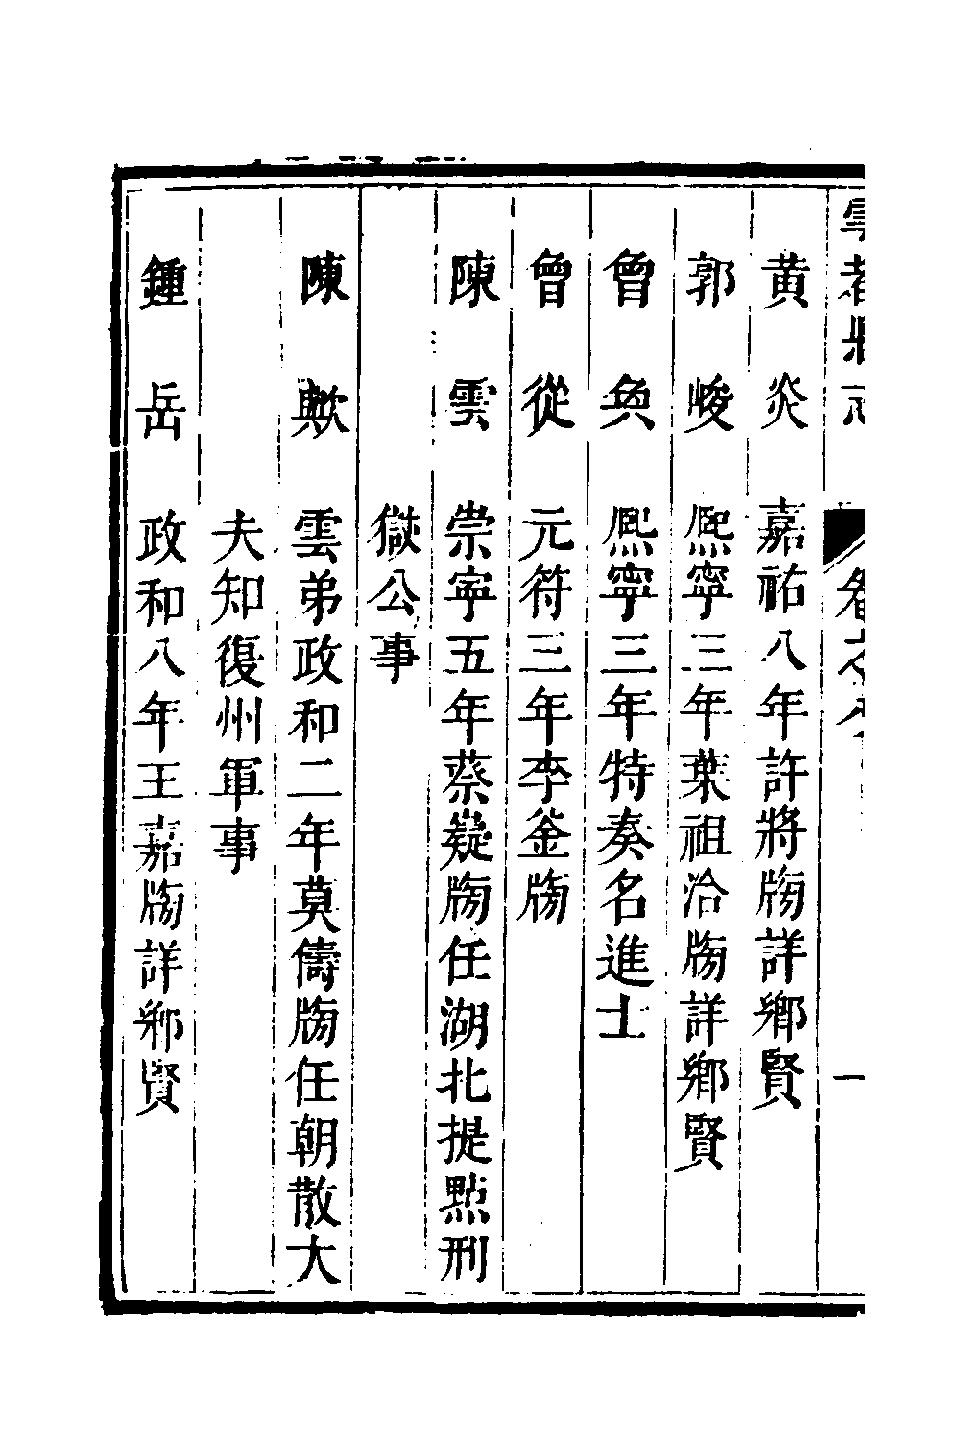 雩都縣志 卷之八 一
黃炎 嘉祐八年許將牓詳鄉賢
郭峻 熙寧三年葉祖洽牓詳鄉賢
曾奐 熙寧三年特奏名進士
曾從 元符三年李釜牓
陳雲 崇寧五年蔡嶷牓任湖北提點刑
獄公事
陳歟 雲弟政和二年莫儔牓任朝散大
夫知復州軍事
鍾岳 政和八年王嘉牓詳鄉賢